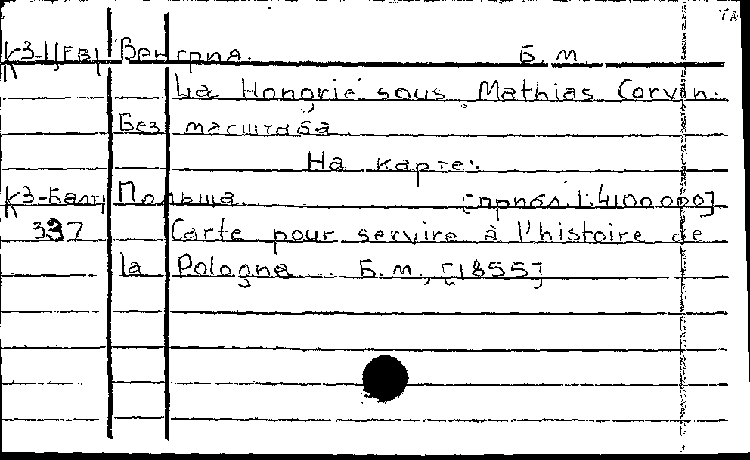 К3-Ц(ЕВ) Венгрия. Б.м.
La Hongrie sous Mathias Corvin.
Без масштаба
На карте:
К3-Балт Польша. [прибл. 1:4100000]
337 Carte pour servire à l'histoire de
la Pologne... Б.м., [1855]